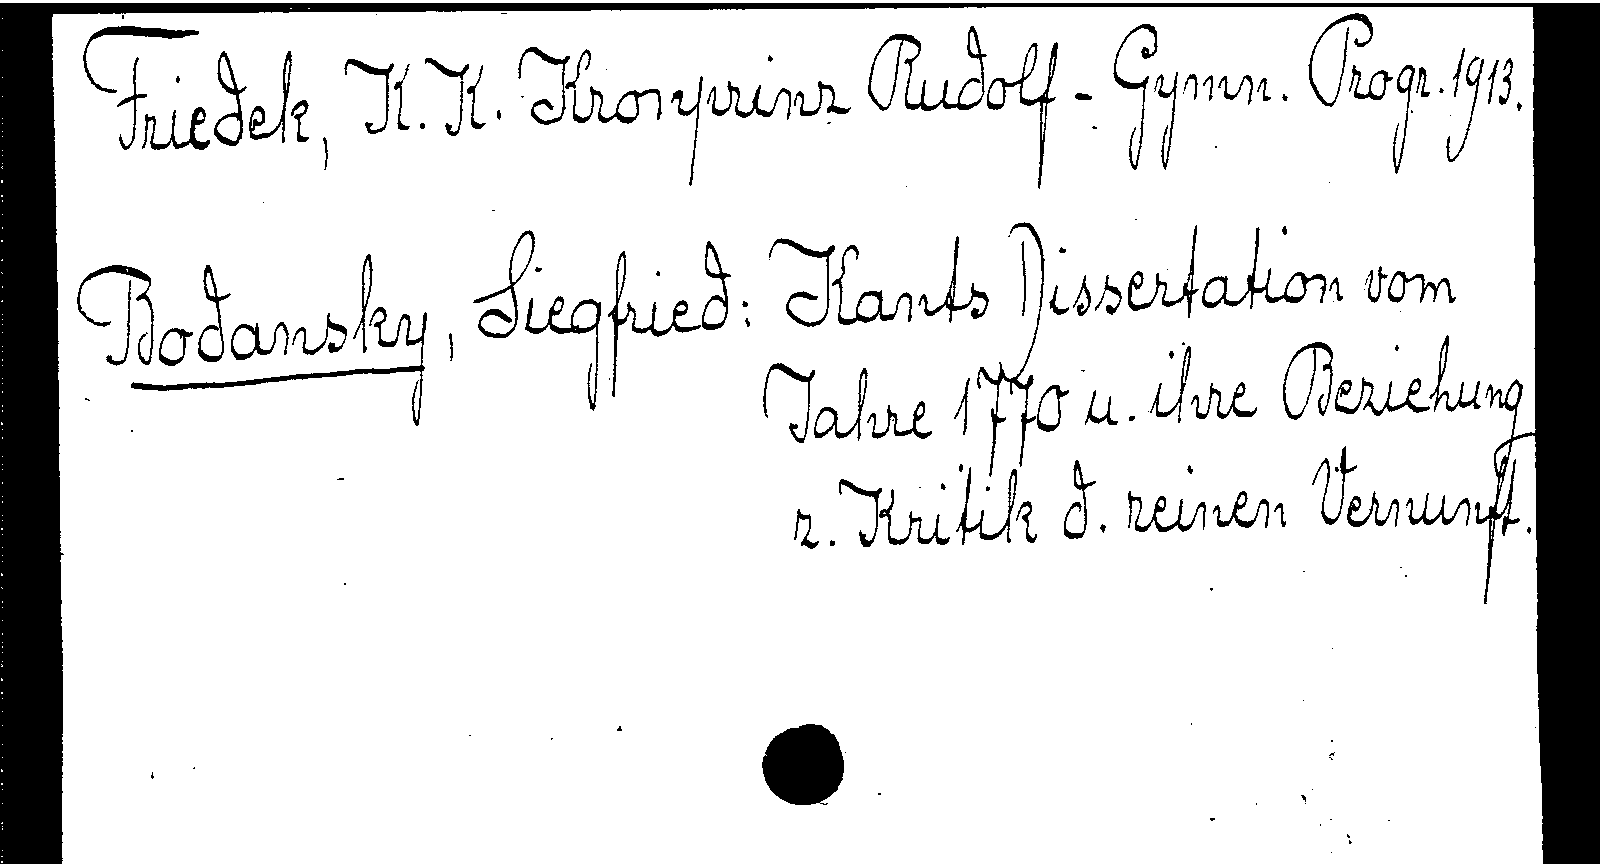 Friedek, K. K. Kronprinz Rudolf - Gymn. Progr. 1913.
Bodansky, Siegfried: Kants Dissertation vom
Jahre 1770 u. ihre Beziehung
z. Kritik d. reinen Vernunft.